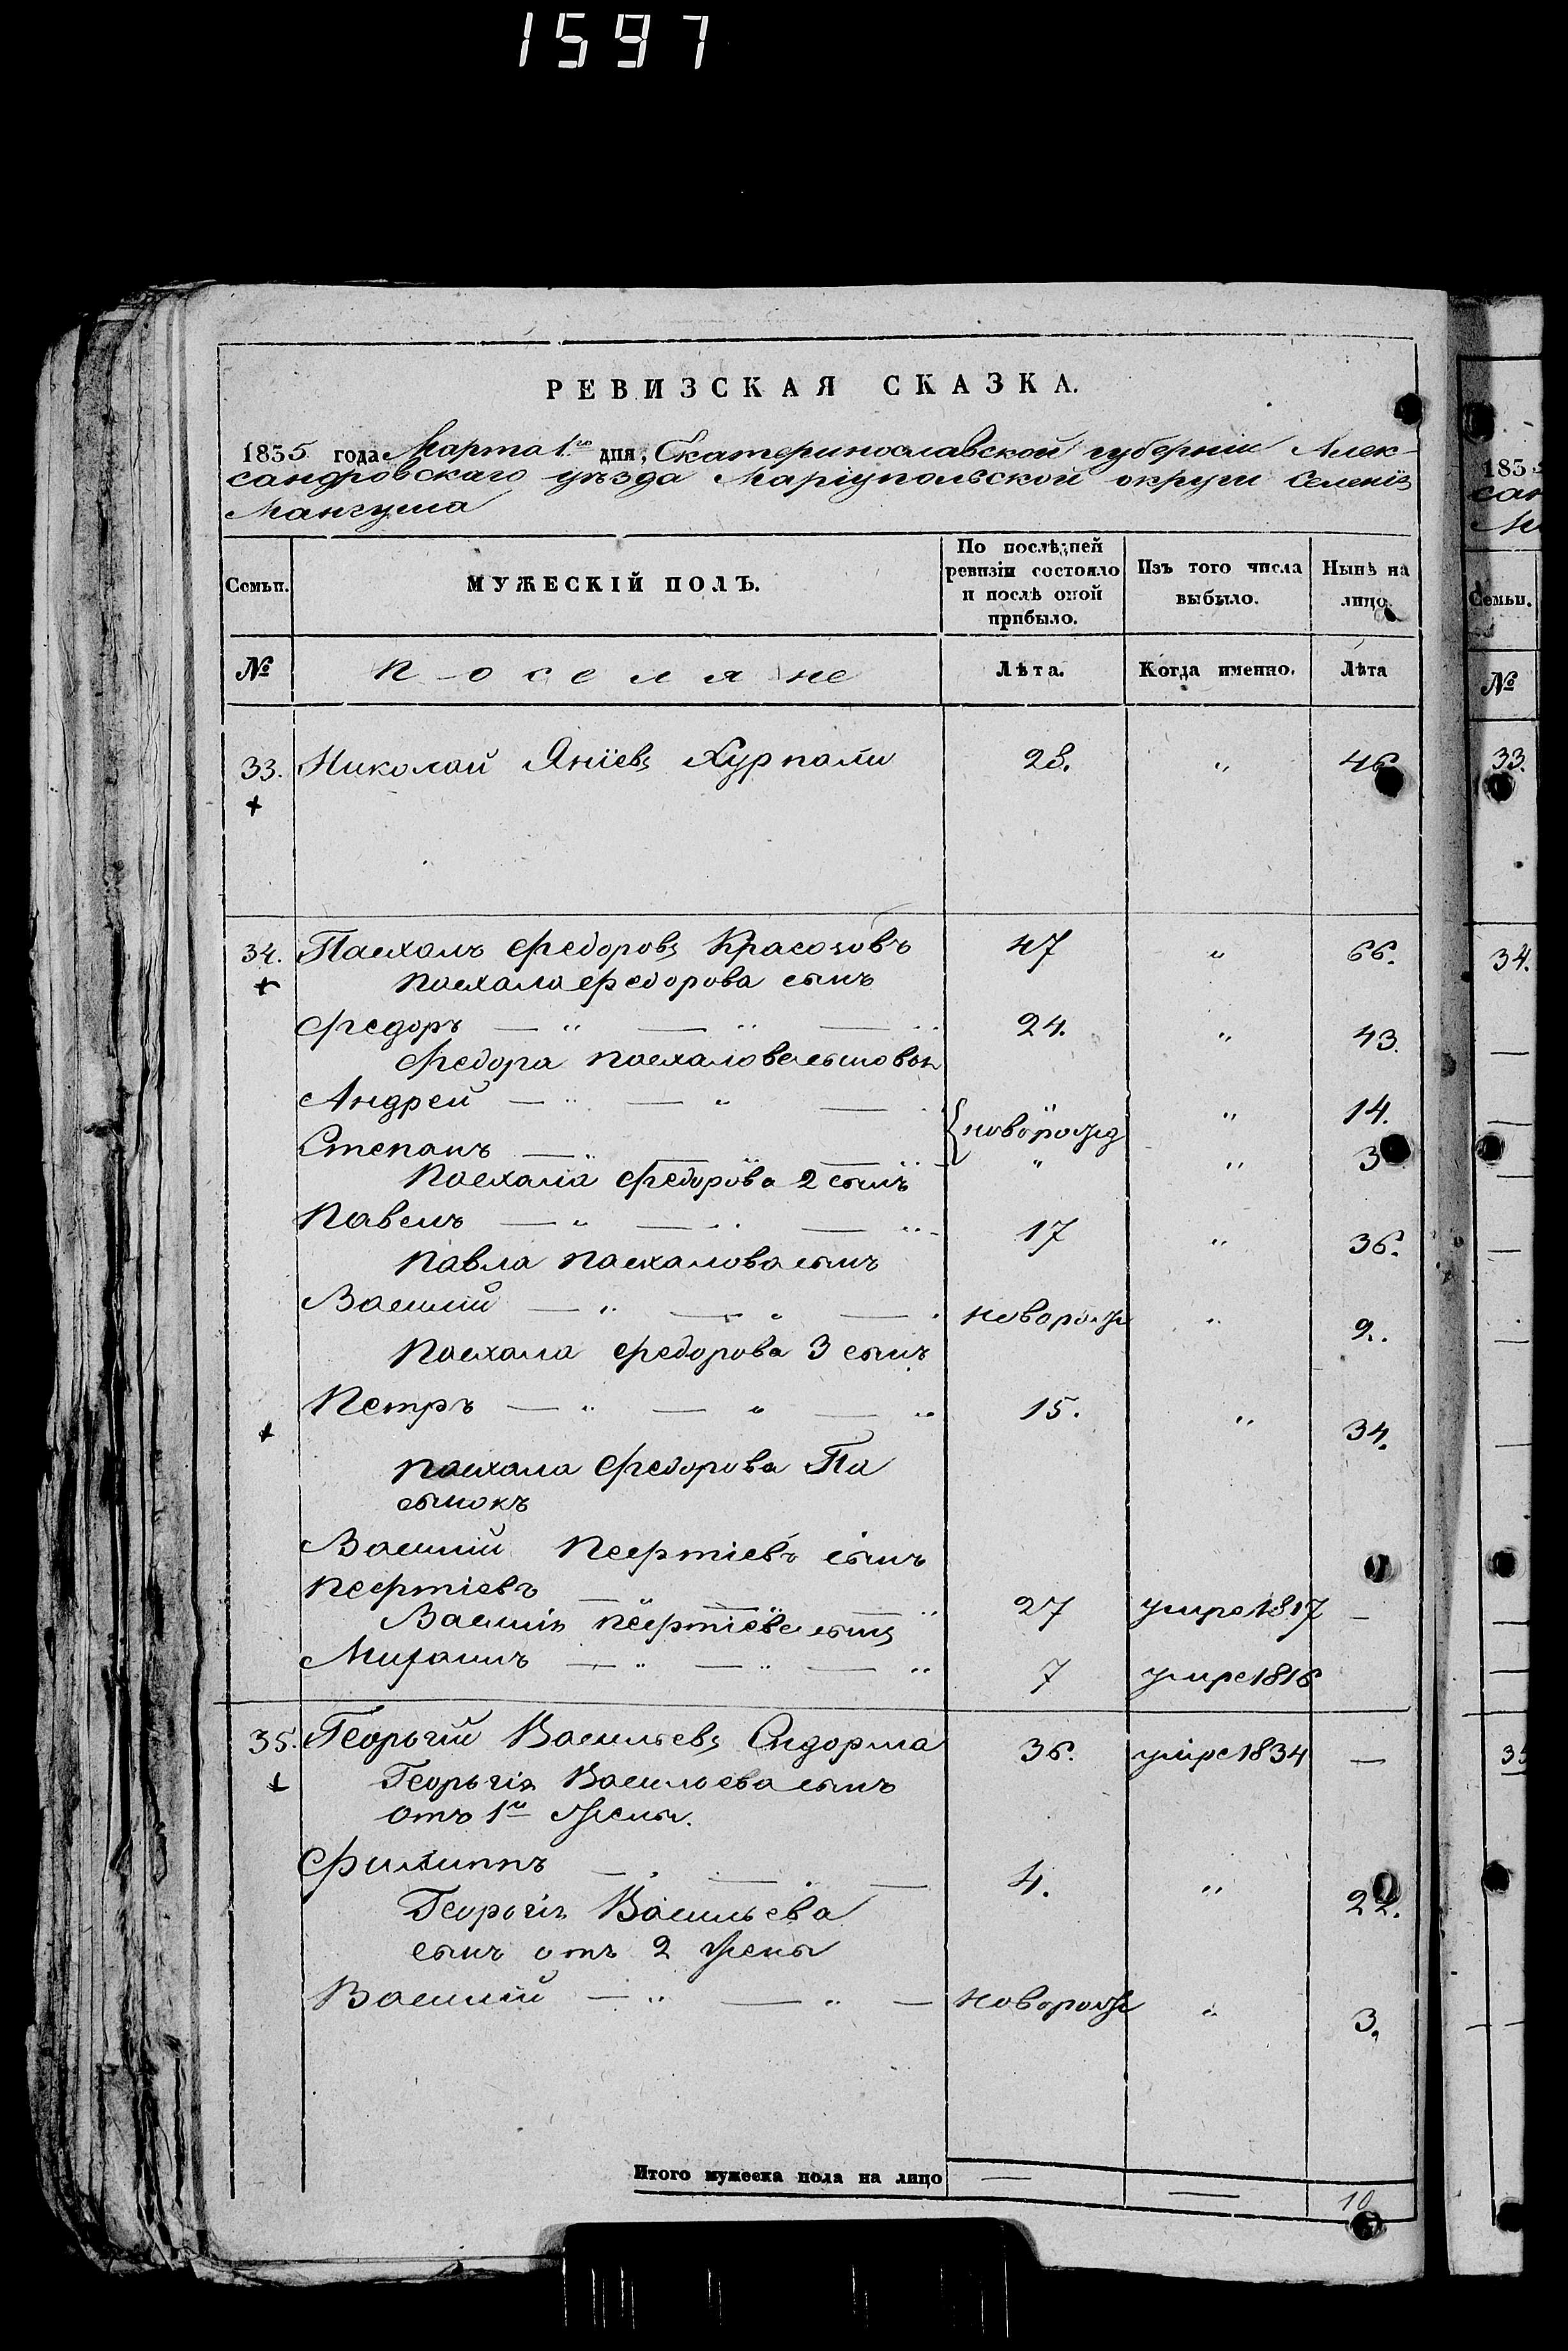 1597
РЕВИЗСКАЯ СКАЗКА.
1835 года Марта 1го дня, Екатеринославской губерніи Алек-
сандровскаго уѣзда Маріупольской округи Селенія
Мангуша
Семьи. МУЖЕСКІЙ ПОЛЪ. По послѣдней ревизіи состояло и послѣ оной прибыло. Изъ того числа выбыло. Нынѣ на лицо.
№ Поселяне Лѣта. Когда именно. Лѣта
33. Николай Яніевъ Хурпали 28. " 46
34. Пасхалъ Федоровъ Красоховъ 47 " 66.
Пасхала Федорова сынъ
Федоръ — " — " — " 24. " 43.
Федора Пасхалова сыновья
Андрей — " — " — новорожд " 14.
Степанъ — " — " — " " " 3
Пасхала Федорова 2 сынъ
Павелъ — " — " — " 17 " 36.
Павла Пасхалова сынъ
Василій — " — " — " новорож " 9.
Пасхала Федорова 3 сынъ
Петръ — " — " — " 15. " 34.
Пасхала Федорова Па
сынокъ
Василій Псефтіевъ сынъ
Псефтіевъ — " — " — " 27 умре 1817 —
Василія Псефтіева сынъ
Михаилъ — " — " — " 7 умре 1816
35. Георгій Васильевъ Сидорма 36. умре 1834 —
Георгія Васильева сынъ
отъ 1й жены.
Филиппъ — " — " — 4. " 22.
Георгія Васильева
сынъ отъ 2 жены
Василій — " — " — новорож " 3.
Итого мужеска пола на лицо — — 10
183
сан
М
Семьи.
№
33.
34.
35